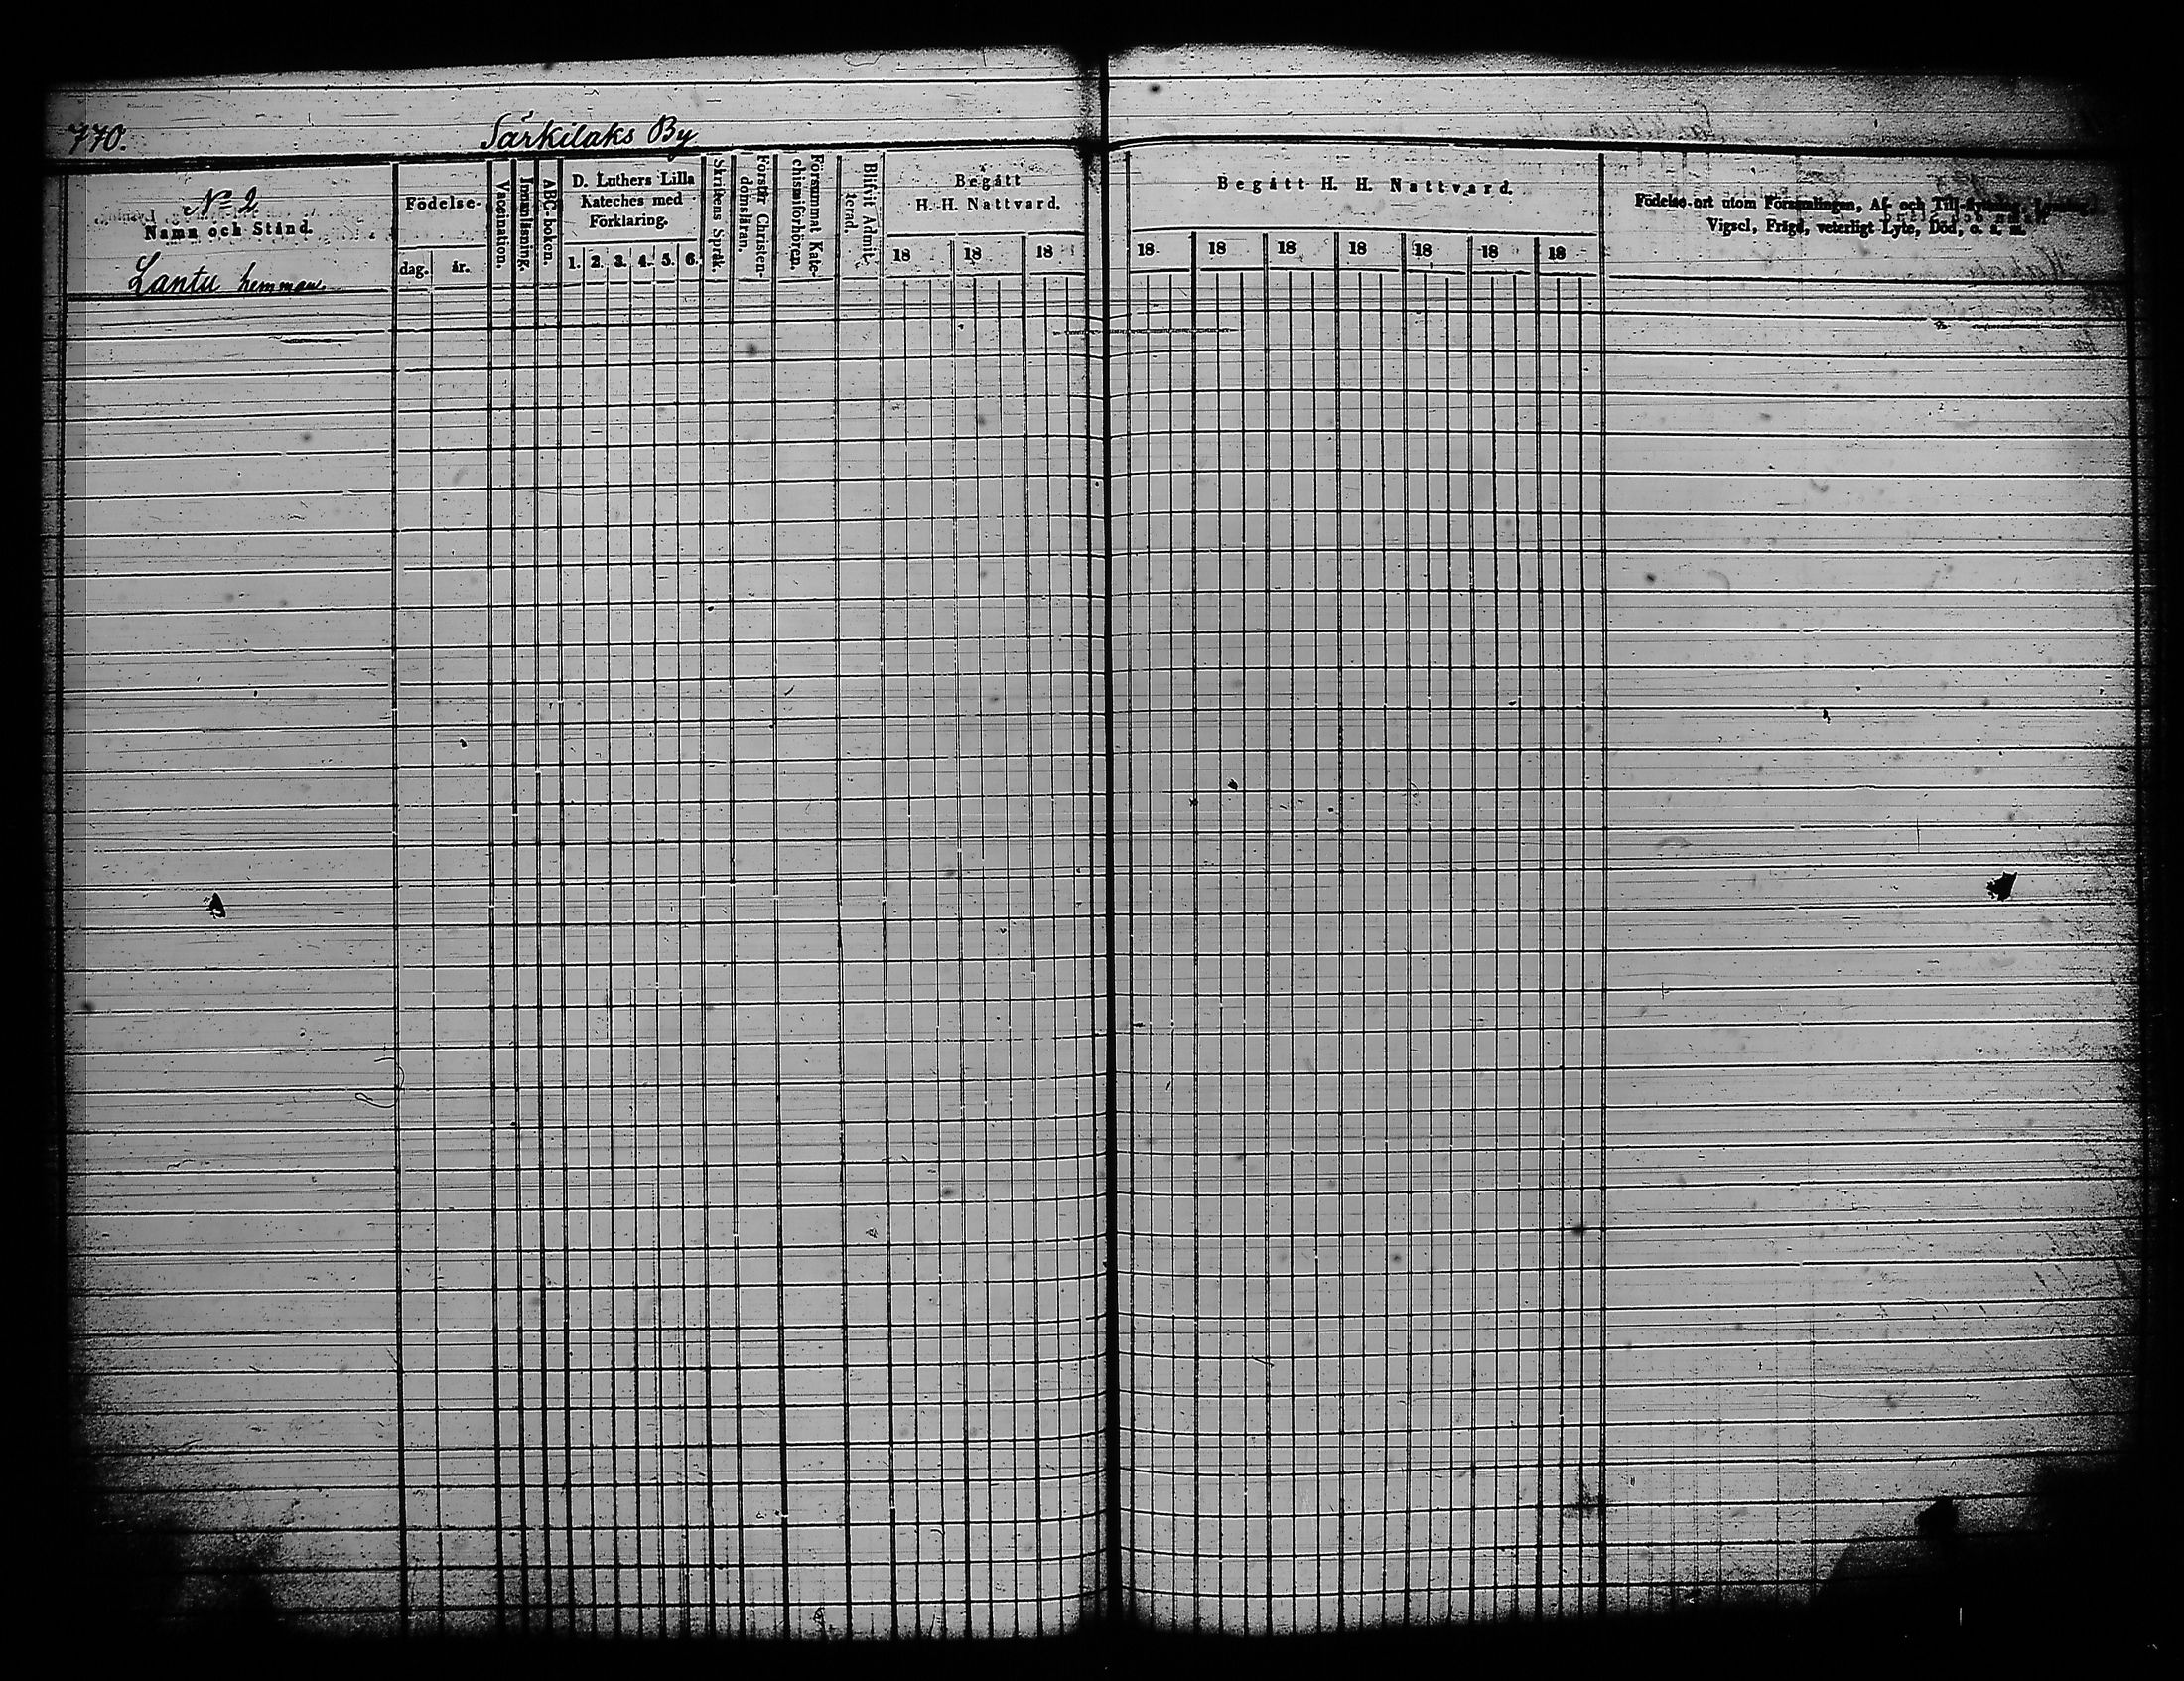 770.
Särkilaks By
N:o 2
Namn och Stånd.
Lantu hemman
Födelse-
dag.
år.
Vaccination.
Innanläsning.
ABC-boken.
D. Luthers Lilla
Kateches med
Förklaring.
1. 2. 3. 4. 5. 6.
Skribens Språk.
Förstår Christen-
domsläran.
Försummat Kate-
chismiförhören.
Blifvit Admit-
terad.
Begått
H. H. Nattvard.
18 18 18
Begått H. H. Nattvard.
18 18 18 18 18 18 18
Födelse-ort utom Församlingen, Af- och Till-flyttning,
Vigsel, Frägd, veterligt Lyte, Död, o. s. m.